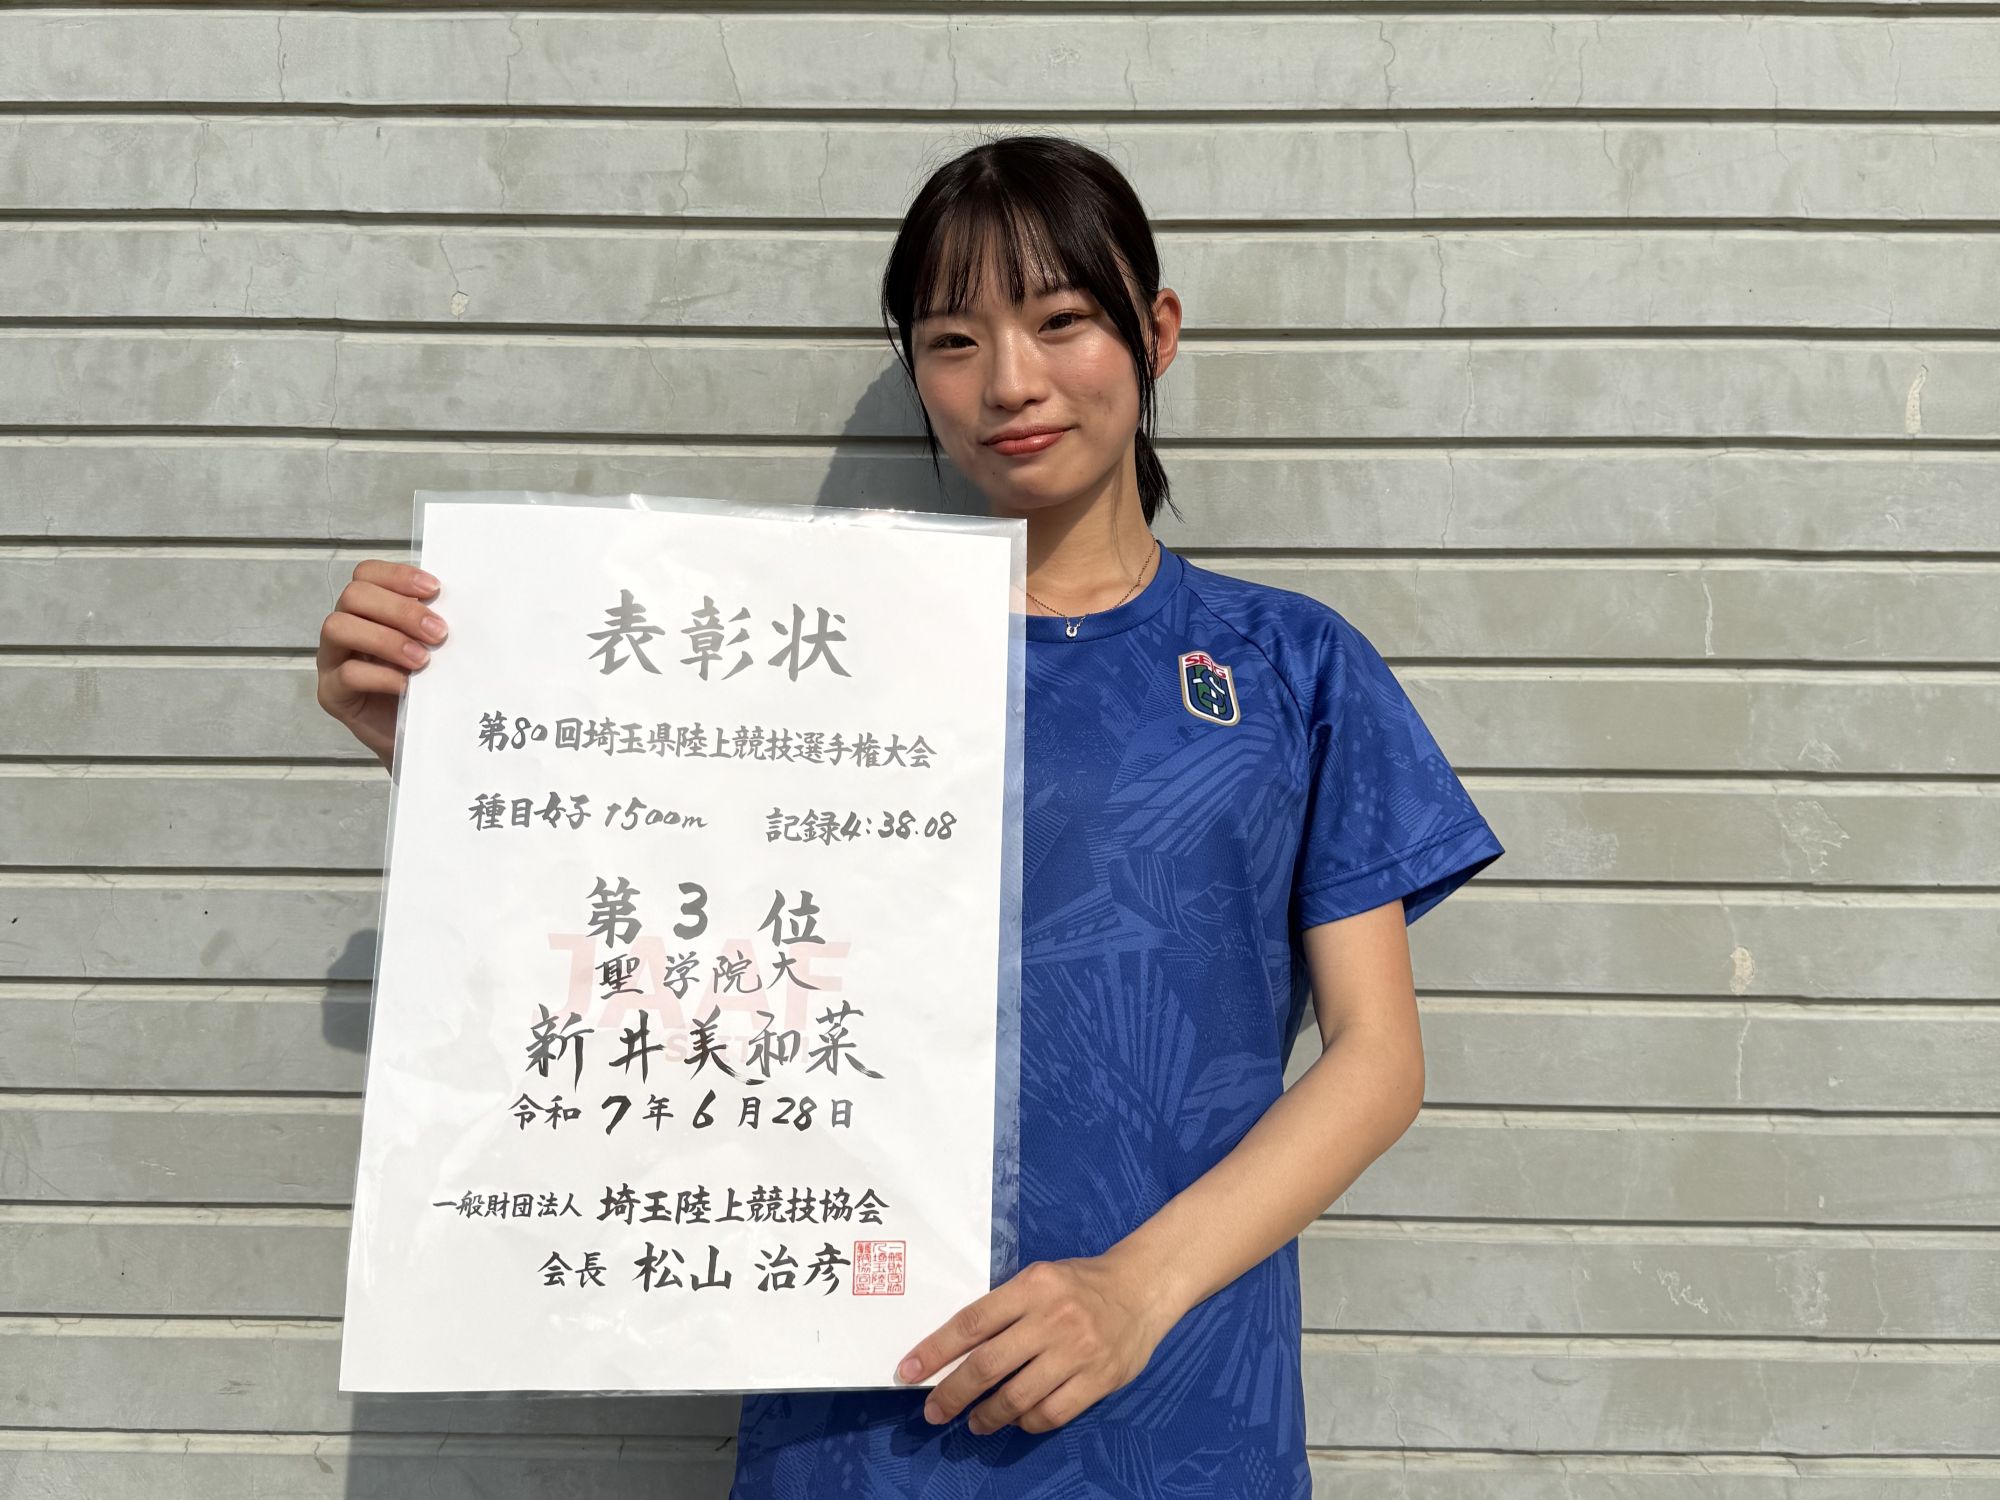 表彰状
第80回埼玉県陸上競技選手権大会
種目女子1500m 記録4:38.08
第3位
聖学院大
新井美和菜
令和7年6月28日
一般財団法人 埼玉陸上競技協会
会長 松山 治彦
JAAF
SEIG